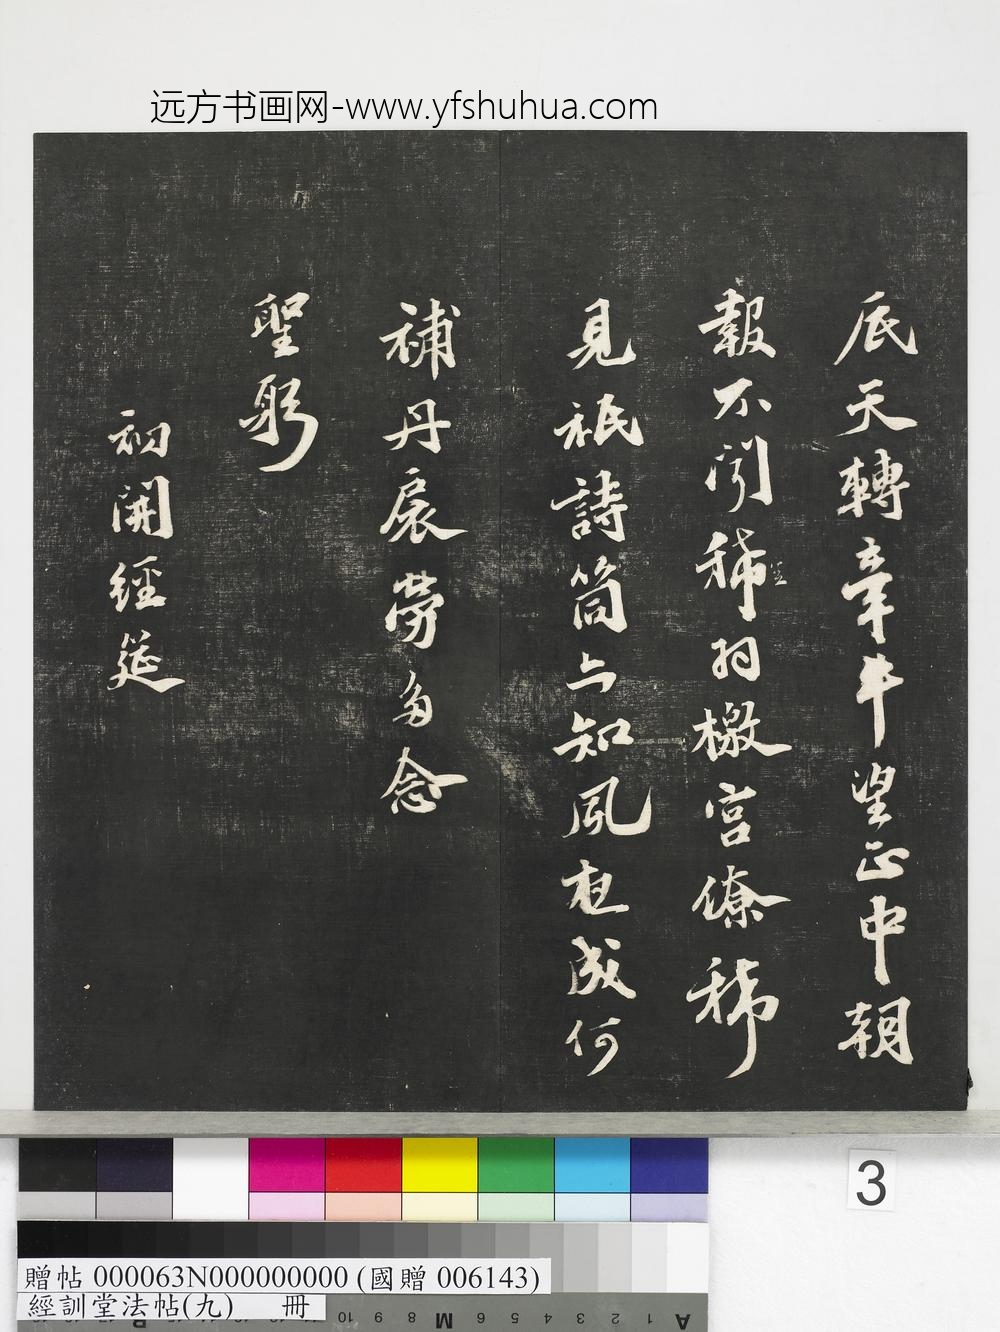 远方书画网-www.yfshuhua.com
底天轉章牛望正中朝
報不聞稀羽檄宮僚稀
見祇詩筒与知夙夜成何
補丹扆勞多念
聖躬
初開經筵
3
贈帖 000063N000000000 (國贈 006143)
經訓堂法帖(九) 冊